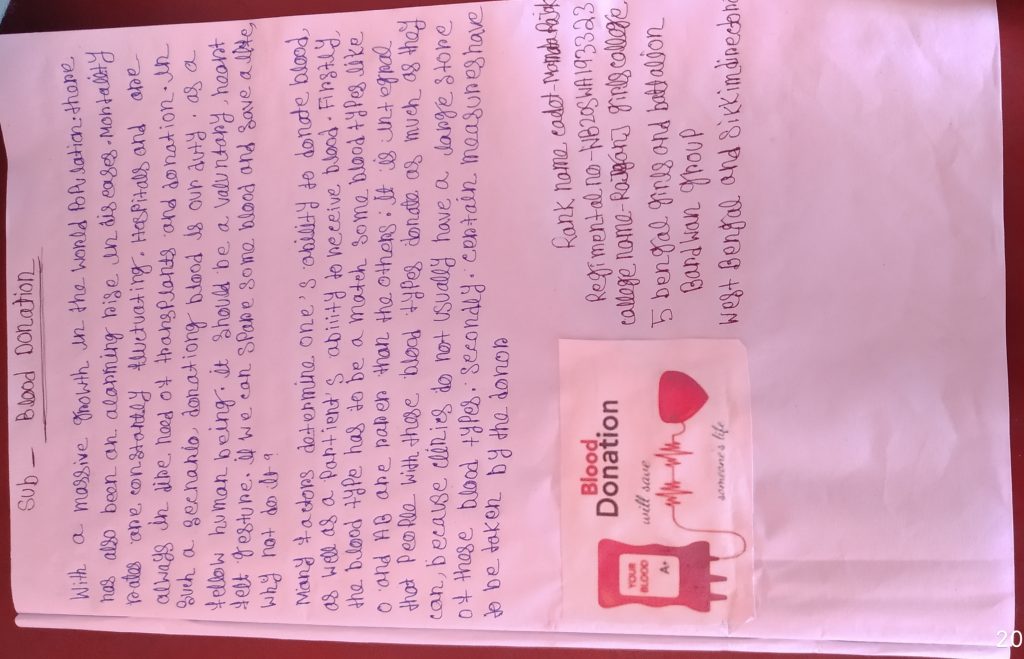 Sub - Blood Donation
With a massive growth in the world population: there
has also been an alarming rise in diseases. Mortality
rates are constantly fluctuating. Hospitals and are
always in dire need of transplants and donation. in
such a scenario, donationg blood is our duty, as a
fellow human being. it should be a voluntary, heart
felt gesture. if we can spare some blood and save a life,
why not do it?
Many factors determine one's ability to donate blood,
as well as a partient's ability to receive blood. Firstly,
the blood type has to be a match some blood types like
O and AB are rarer than the others. It is integral
that people with those blood types donate as much as they
can, because clinics do not usually have a large store
of those blood types. Secondly. certain measures have
to be taken by the donor
Rank name cadet-
Regimental no-NB20SWA193323
college name- girls college
5 bengal girls and battalion
Bardwan group
West Bengal and Sikkim
Blood
Donation
will save
someone's life
YOUR
BLOOD
A+
20